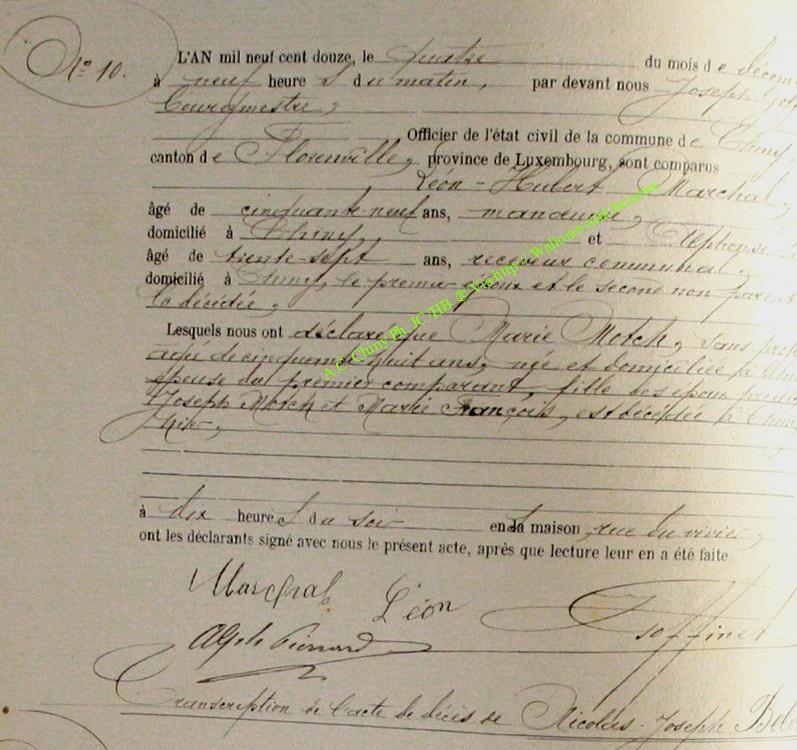 N° 10.
L'AN mil neuf cent douze, le quatre du mois de décem
à neuf heures du matin, par devant nous Joseph Goff
bourgmestre,
Officier de l'état civil de la commune de Chiny,
canton de Florenville, province de Luxembourg, sont comparus
Léon-Hubert Marchal,
âgé de cinquante-neuf ans, manœuvre,
domicilié à Chiny, et Alphonse
âgé de trente-sept ans, receveur communal,
domicilié à Chiny, le premier époux et le second non parent
la décédée,
Lesquels nous ont déclaré que Marie Motch, sans prof
agée de cinquante huit ans, née et domiciliée à Chin
épouse du premier comparant, fille des époux
Joseph Motch et Marie François, est décédée à Chiny
hier,
à dix heures du soir en la maison, rue du vivier,
ont les déclarants signé avec nous le présent acte, après que lecture leur en a été faite.
Marchal Léon
JGoffinet
Alph Pierrard
Transcription de l'acte de décès de Nicolas-Joseph
A.C. Chiny Ph. JC/HB @